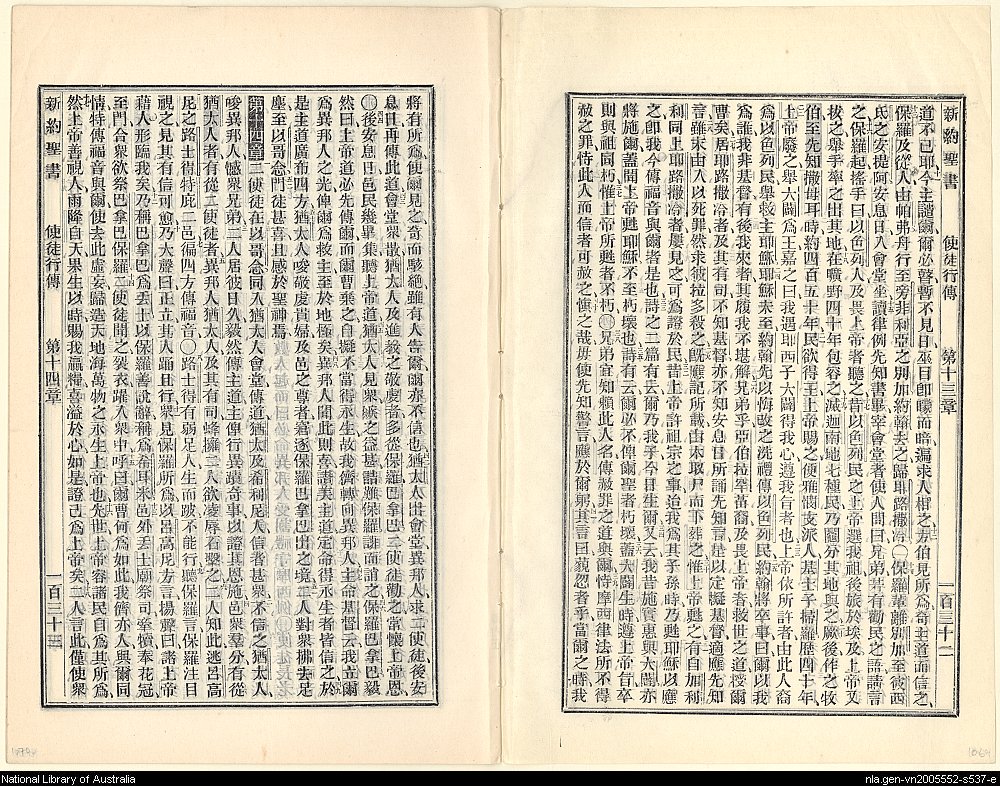 新約聖書 使徒行傳 第十三章 一百三十二
道不已耶今主譴爾爾必瞽暫不見日巫目即矇而暗遍求人相之方伯見所爲奇主道而信之
保羅及從人由帕弗舟行至旁非利亞之別加約翰去之歸耶路撒冷○保羅輩離別加至彼西
氐之安提阿安息日入會堂坐讀律例先知書畢宰會堂者使人問曰兄弟若有勸民之語請言
之保羅起搖手曰以色列人及畏上帝者聽之昔以色列民之上帝選我祖後旅於埃及上帝又
拔之舉手率之出其地在曠野四十年包容之滅迦南地七種民乃鬮分其地與之厥後作之牧
伯至先知撒母耳時約四百五十年民欲得王上帝賜之便雅憫支派人基士子掃羅歷四十年
上帝廢之舉大闢爲王嘉之曰我遇耶西子大闢得我心遵我旨者也上帝依所許者由此人裔
爲以色列民舉救主耶穌耶穌未至約翰先以悔改之洗禮傳以色列民約翰將卒事曰爾以我
爲誰我非基督有後我來者其履我不堪解兄弟乎亞伯拉罕苗裔及畏上帝者救世之道授爾
曹矣居耶路撒冷者及其有司不知基督亦不知安息日所誦先知言是以定擬基督適應先知
言雖未由入以死罪然求彼拉多殺之既應記所載由木取尸而下葬之惟上帝甦之有自加利
利同上耶路撒冷者屢見之可爲證於民昔上帝許祖宗之事迨我爲其子孫時乃甦耶穌以應
之即我今傳福音與爾者是也詩之二篇有云爾乃我子今日生爾又云我昔施實惠與大闢亦
將施爾蓋聞上帝甦耶穌不至朽壞也詩有云爾必不俾爾聖者朽壞蓋大闢生時遵上帝旨卒
則與祖同朽惟上帝所甦者不朽○兄弟宜知賴此人名傳赦罪之道與爾恃摩西律法所不得
赦之罪恃此人而信者可赦之慎之哉毋使先知警言應於爾躬其言曰藐忽者乎當爾之時我
將有所爲使爾見之奇而駭絕雖有人告爾爾亦不信也猶太人出會堂異邦人求二使徒後安
息日再傳此道會堂衆散猶太人及進教之敬虔者多從保羅巴拿巴二使徒勸之常懷上帝恩
○後安息日邑民幾畢集聽上帝道猶太人見衆嫉之益甚詰難保羅誹而謗之保羅巴拿巴毅
然曰上帝道必先傳爾而爾曹棄之自擬不當得永生故我儕轉向異邦人主命基督云我立爾
爲異邦人之光俾爾爲救主至於地極矣異邦人聞此則喜讚美主道定命得永生者皆信之於
是主道廣布四方猶太人唆敬虔貴婦及邑之尊者窘逐保羅巴拿巴出之境二人對衆拂去足
塵至以哥念門徒甚喜且感於聖神焉
第十四章 二使徒在以哥念同入猶太人會堂傳道猶太及希利尼人信者甚衆不信之猶太人
唆異邦人憾衆兄弟二人居彼日久毅然傳主道主俾行異蹟奇事以證其恩施邑衆羣分有從
猶太人者有從二使徒者異邦人猶太人及其有司蜂擁二人欲凌辱石擊之二人知此逃呂高
尼之路士得特庇二邑徧四方傳福音○路士得有弱足人生而跛不能行聽保羅言保羅注目
視之見其有信可愈乃大聲曰正立其人踊且行衆見保羅所爲以呂高尼方言揚聲曰諸上帝
藉人形臨我矣乃稱巴拿巴爲丟士以保羅善說辭稱爲希耳米邑外丟士廟祭司牽犢奉花冠
至門合衆欲祭巴拿巴保羅二使徒聞之裂衣躍入衆中呼曰爾曹何爲如此我儕亦人與爾同
情特傳福音與爾使去此虛妄歸造天地海萬物之永生上帝也先世上帝容諸民自爲其所爲
然上帝善視人雨降自天果生以時賜我贏糧喜溢於心如是證己爲上帝矣二人言此僅使衆
新約聖書 使徒行傳 第十四章 一百三十三
National Library of Australia
nla.gen-vn2005552-s537-e